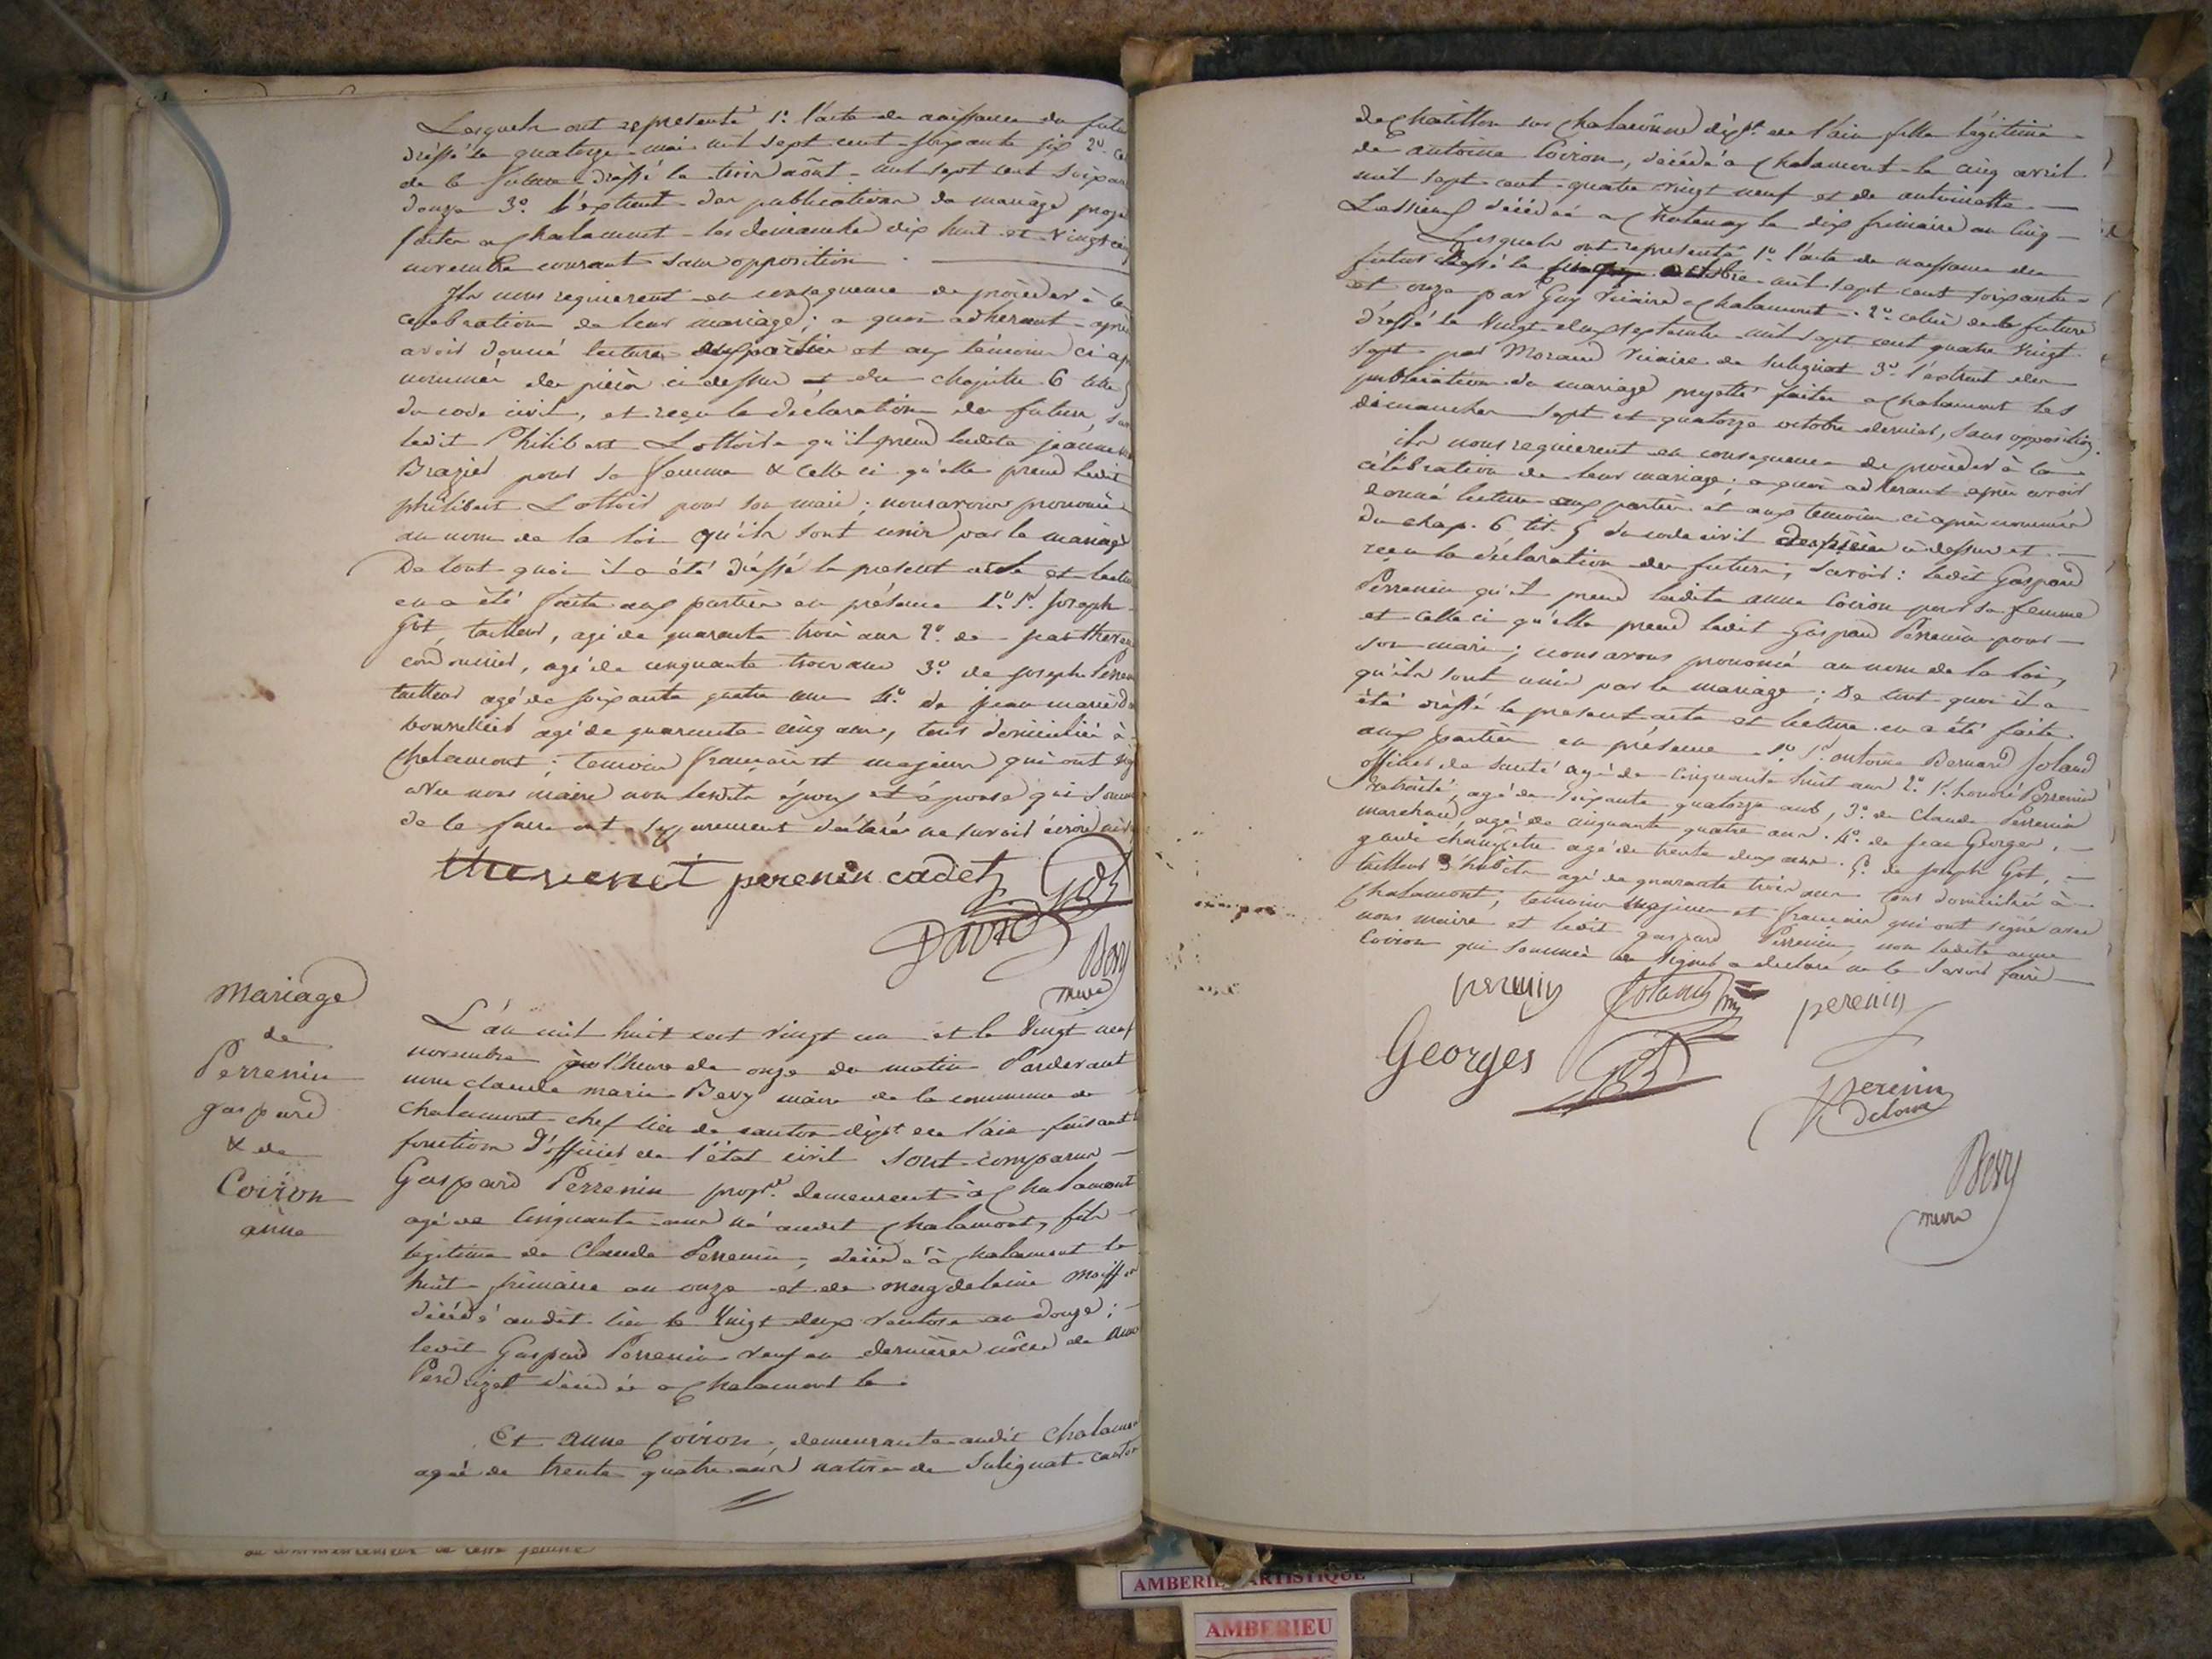 Lesquels ont representé 1º. l'acte de naissance du futur
dréssé le quatorze mai mil sept cent soixante six 2º. ce
de la future dréssé le trois août mil sept cent soixan
douze 3º. l'extrait des publications de mariage proje
faites a Chalamont les dimanches dix huit et vingt cin
novembre courant sans opposition.
Ils nous requierent en consequence de procéder à la
celebration de leur mariage; a quoi adherant après
avoir donné lecture aux parties et aux témoins ci ap
nommés des pièces ci dessus et du chapitre 6 titre
du code civil, et reçu la déclaration des futurs, sav
ledit Philibert Lottoir qu'il prend ladite jeanne
Brazier pour sa femme & celle ci qu'elle prend ledit
philibert Lottoir pour son mari; nous avons prononcé
au nom de la loi qu'ils sont unis par le mariage
De tout quoi il a été dréssé le present acte et lectu
en a été faite aux parties en présence 1º. Sr. Joseph
Got, tailleur, agé de quarante trois ans 2º. de jean theven
cordonnier, agé de cinquante trois ans 3º. de joseph Peren
tailleur agé de soixante quatre ans 4º. de jean marie D
bourrellier agé de quarante cinq ans, tous domiciliés à
Chalamont; temoins français et majeurs qui ont sig
avec nous maire non lesdits époux et épouse qui somm
de le faire ont séparement déclarés ne savoir écrire ni s
thevenet perenin cadet Got
David
Bevy
maire
Mariage
de
Perrenin
gaspard
& de
Coiron
anne
L'an mil huit cent vingt un et le vingt neuf
novembre sur l'heure de onze du matin Pardevant
nous claude marie Bevy maire de la commune de
Chalamont chef lieu de canton dépt. de l'ain faisant
fonctions d'officier de l'état civil sont comparus
Gaspard Perrenin propre. demeurant à Chalamont
agé de cinquante ans né audit Chalamont, fils
légitime de Claude Perrenin, décédé à Chalamont le
huit frimaire an onze et de magdeleine
décédé audit lieu le vingt deux ventose an douze;
ledit Gaspard Perrenin veuf en dernières nôces de
Perdrizet décédée a Chalamont le.
Et anne Coiron, demeurante audit Chalamo
agée de trente quatre ans native de Sulignat canton
de Chatillon sur Chalaronne dépt. de l'ain fille légitime
de antoine Coiron, décédé a Chalamont le cinq avril
mil sept cent quatre vingt neuf et de antoinette
décédée a Chatenay le dix frimaire an cinq
Lesquels ont representé 1º. l'acte de naissance du
futur dréssé le octobre mil sept cent soixante
et onze par Guy vicaire a Chalamont. 2º. celui de la future
dréssé le vingt deux septembre mil sept cent quatre vingt
sept par Morand vicaire de Sulignat 3º. l'extrait des
publications du mariage projetté faites a Chalamont les
dimanches sept et quatorze octobre dernier, sans opposition.
ils nous requierent en consequence de procéder à la
célébration de leur mariage; a quoi adherant après avoir
donné lecture aux parties et aux temoins ci après nommés
du chap. 6 tit. 5 du code civil des pièces ci dessus et
reçu la déclaration des futurs, savoir: ledit Gaspard
Perrenin qu'il prend ladite anne Coiron pour sa femme
et celle ci qu'elle prend ledit Gaspard Perrenin pour
son mari; nous avons prononcé au nom de la loi,
qu'ils sont unis par le mariage; De tout quoi il a
été dréssé le present acte et lecture en a été faite
aux parties en présence 1º. Sr. antoine Bernard Joland
officier de santé agé de cinquante huit ans 2º. Sr. honoré Perrenin
retraité, agé de soixante quatorze ans, 3º. de Claude Perrenin
marchand, agé de cinquante quatre ans. 4º. de jean Georges,
garde champêtre agé de trente deux ans. 5º. de joseph Got,
tailleur d'habits agé de quarante trois ans tous domiciliés à
Chalamont; temoins majeurs et français qui ont signé avec
nous maire et ledit gaspard Perrenin, non ladite anne
Coiron qui sommée de signer a déclaré ne le savoir faire
perenin Joland perenin
Georges Got
perenin
Bevy
maire
au commencement de cette feuille
AMBERIE ARTISTIQUE
AMBERIEU